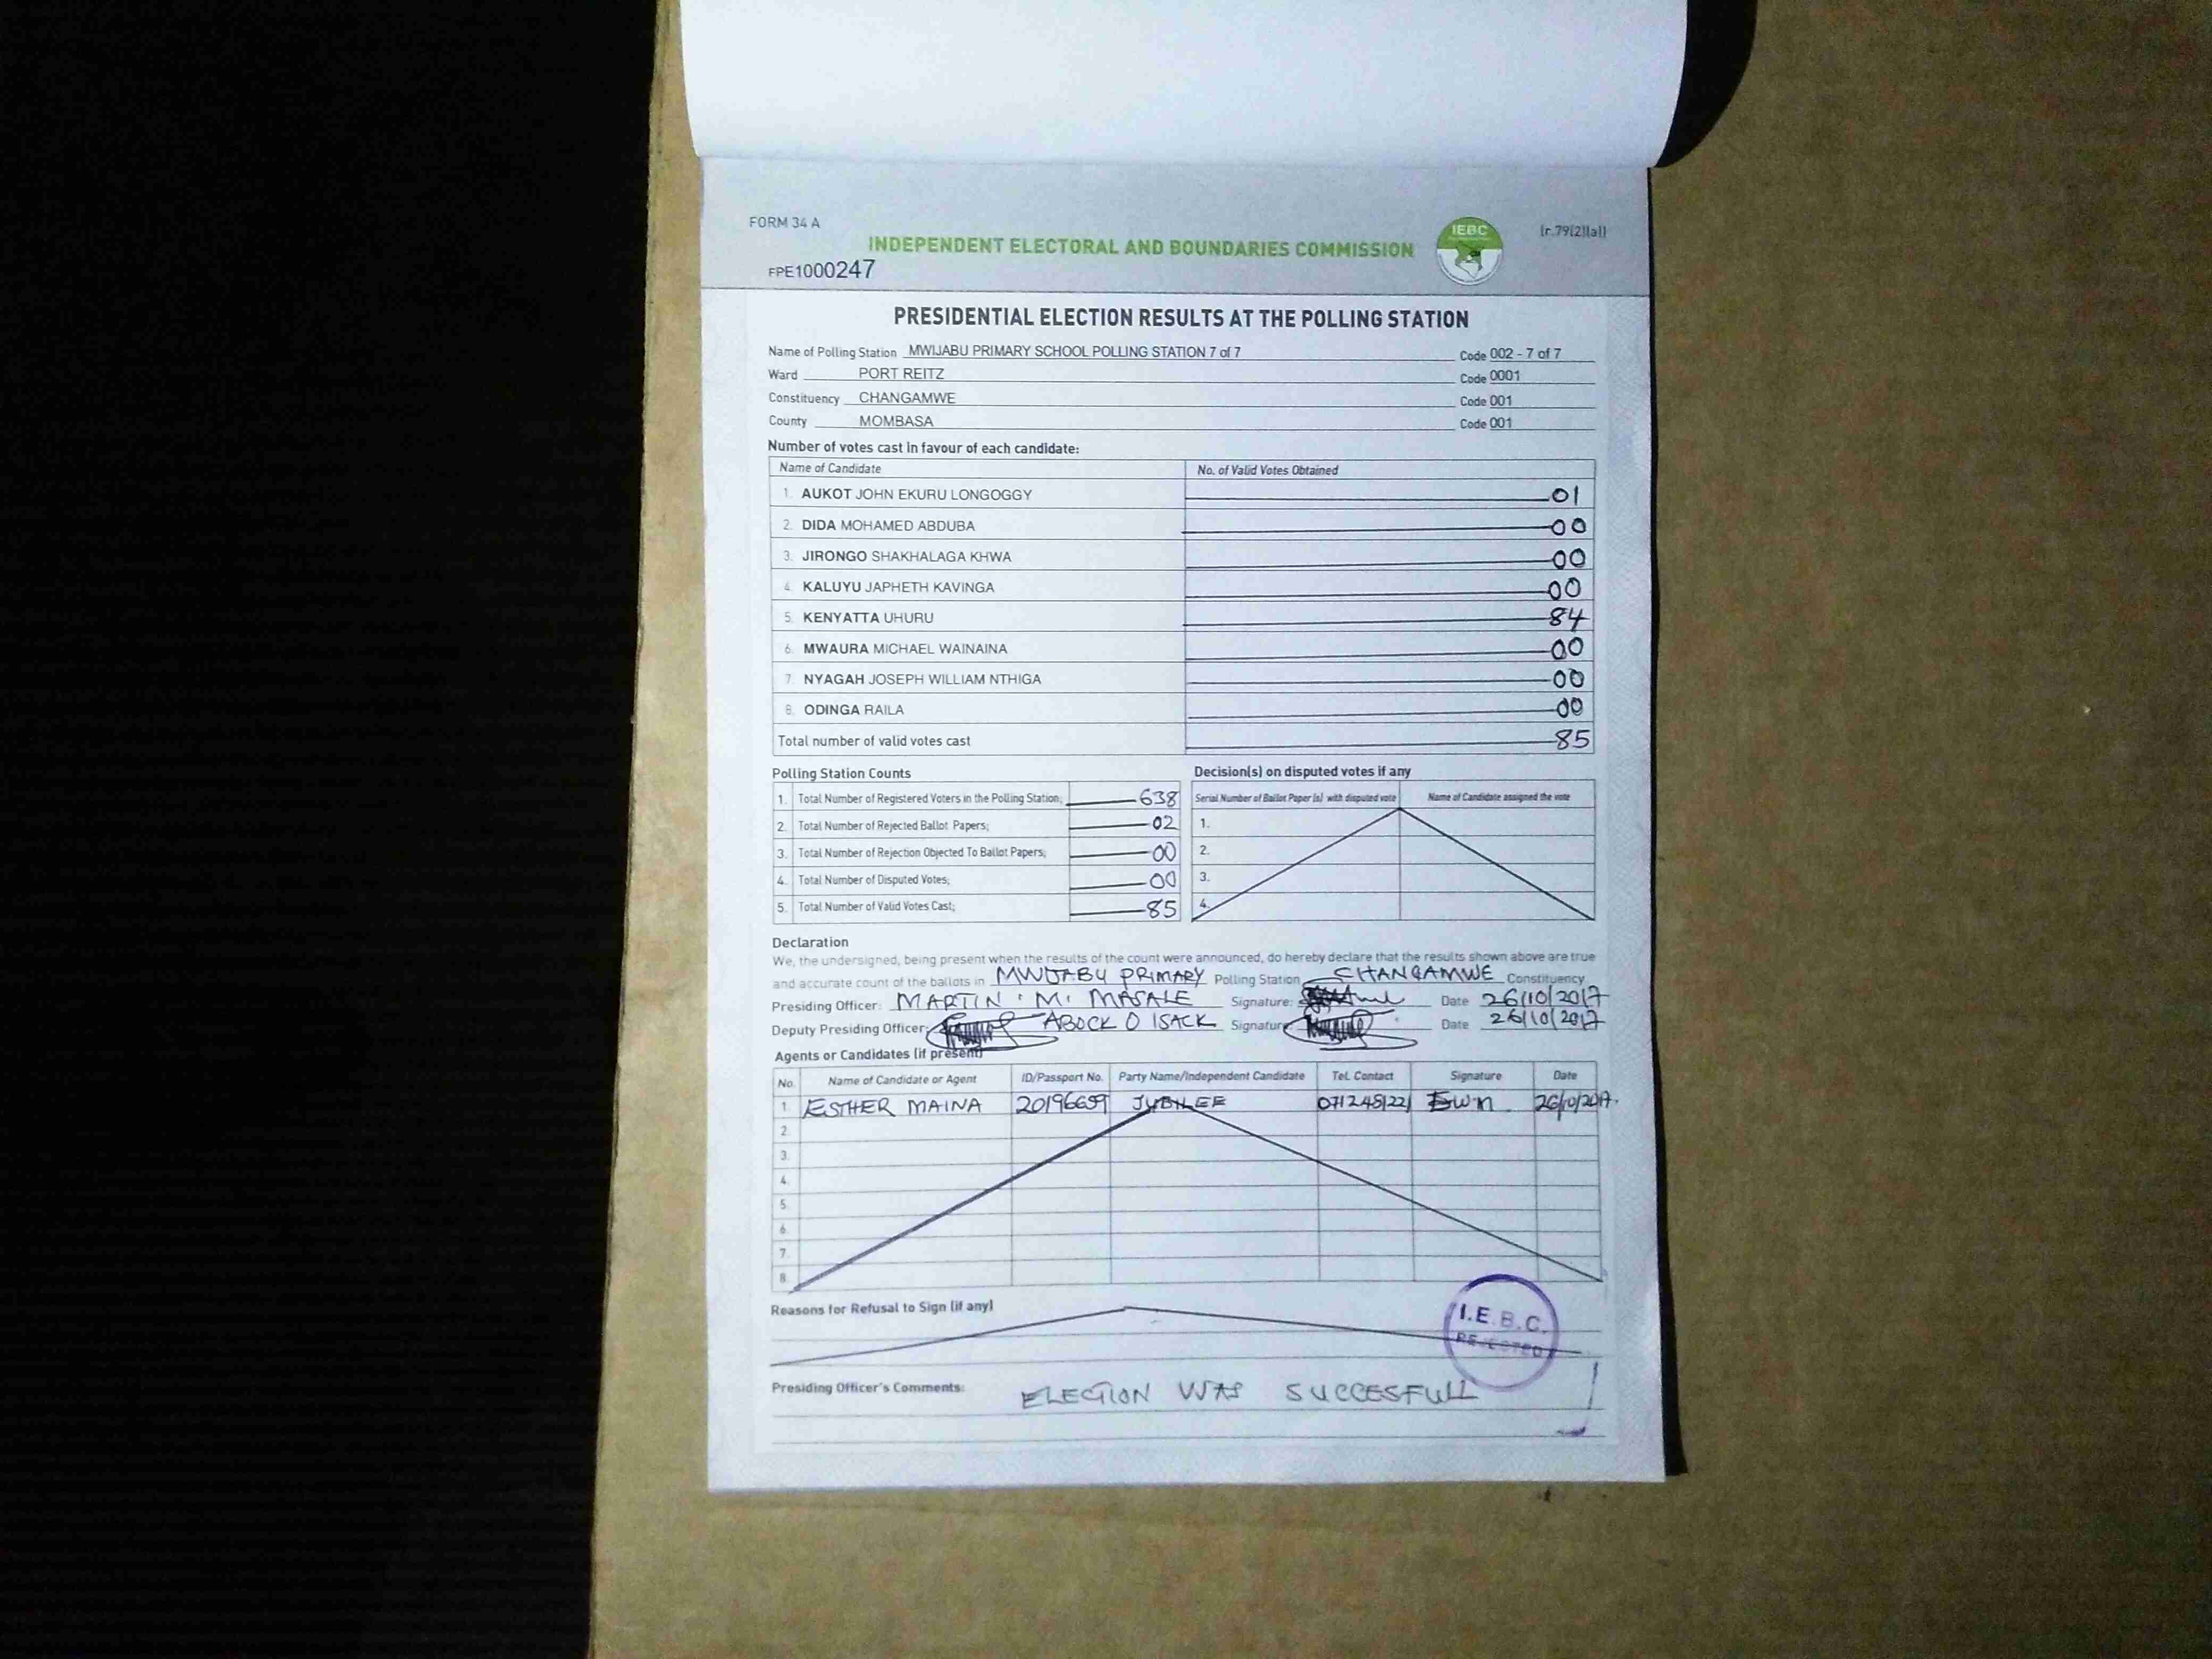 FORM 34 A
INDEPENDENT ELECTORAL AND BOUNDARIES COMMISSION
IEBC
[r.79(2)(a)]
FPE1000247
PRESIDENTIAL ELECTION RESULTS AT THE POLLING STATION
Name of Polling Station MWIJABU PRIMARY SCHOOL POLLING STATION 7 of 7 Code 002 - 7 of 7
Ward PORT REITZ Code 0001
Constituency CHANGAMWE Code 001
County MOMBASA Code 001
Number of votes cast in favour of each candidate:
Name of Candidate No. of Valid Votes Obtained
1. AUKOT JOHN EKURU LONGOGGY 01
2. DIDA MOHAMED ABDUBA 00
3. JIRONGO SHAKHALAGA KHWA 00
4. KALUYU JAPHETH KAVINGA 00
5. KENYATTA UHURU 84
6. MWAURA MICHAEL WAINAINA 00
7. NYAGAH JOSEPH WILLIAM NTHIGA 00
8. ODINGA RAILA 00
Total number of valid votes cast 85
Polling Station Counts
1. Total Number of Registered Voters in the Polling Station; 638
2. Total Number of Rejected Ballot Papers; 02
3. Total Number of Rejection Objected To Ballot Papers; 00
4. Total Number of Disputed Votes; 00
5. Total Number of Valid Votes Cast; 85
Decision(s) on disputed votes if any
Serial Number of Ballot Paper (s) with disputed vote Name of Candidate assigned the vote
1.
2.
3.
4.
Declaration
We, the undersigned, being present when the results of the count were announced, do hereby declare that the results shown above are true
and accurate count of the ballots in MWIJABU PRIMARY Polling Station CHANGAMWE Constituency
Presiding Officer: MARTIN M. MASALE Signature: Date 26/10/2017
Deputy Presiding Officer: ABOCK O ISACK Signature: Date 26/10/2017
Agents or Candidates (if present)
No. Name of Candidate or Agent ID/Passport No. Party Name/Independent Candidate Tel. Contact Signature Date
1. ESTHER MAINA 20196659 JUBILEE Ewn 26/10/2017.
2.
3.
4.
5.
6.
7.
8.
Reasons for Refusal to Sign (if any)
I.E.B.C.
REJECTED
Presiding Officer's Comments: ELECTION WAS SUCCESFULL